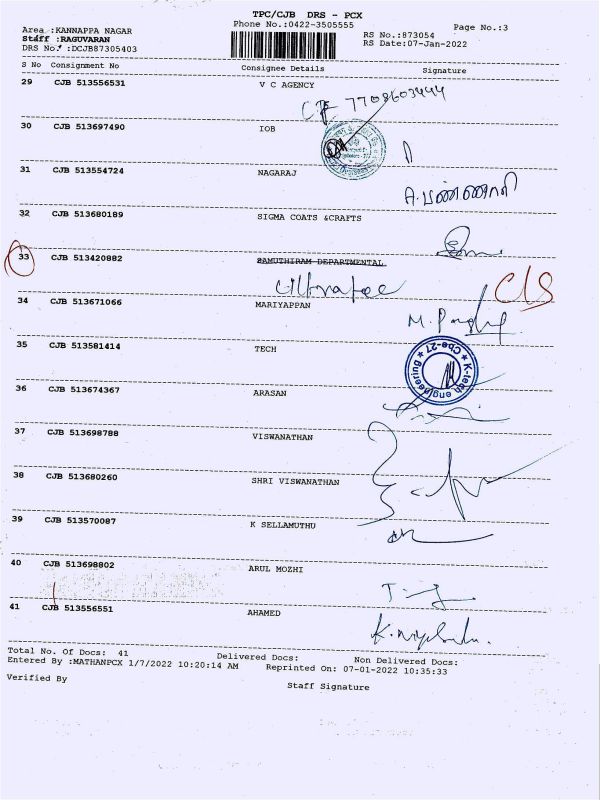 TPC/CJB DRS - PCX
Area :KANNAPPA NAGAR Phone No.:0422-3505555 Page No.:3
Staff :RAGUVARAN RS No.:873054
DRS No.: :DCJB87305403 RS Date:07-Jan-2022
S No Consignment No Consignee Details Signature
29 CJB 513556531 V C AGENCY
7708603444
30 CJB 513697490 IOB
31 CJB 513554724 NAGARAJ
32 CJB 513680189 SIGMA COATS &CRAFTS
33 CJB 513420882 SAMUTHIRAM DEPARTMENTAL
C/S
34 CJB 513671066 MARIYAPPAN
35 CJB 513581414 TECH
K-tech engineering Cbe-21
36 CJB 513674367 ARASAN
37 CJB 513698788 VISWANATHAN
38 CJB 513680260 SHRI VISWANATHAN
39 CJB 513570087 K SELLAMUTHU
40 CJB 513698802 ARUL MOZHI
41 CJB 513556551 AHAMED
Total No. Of Docs: 41 Delivered Docs: Non Delivered Docs:
Entered By :MATHANPCX 1/7/2022 10:20:14 AM Reprinted On: 07-01-2022 10:35:33
Verified By Staff Signature